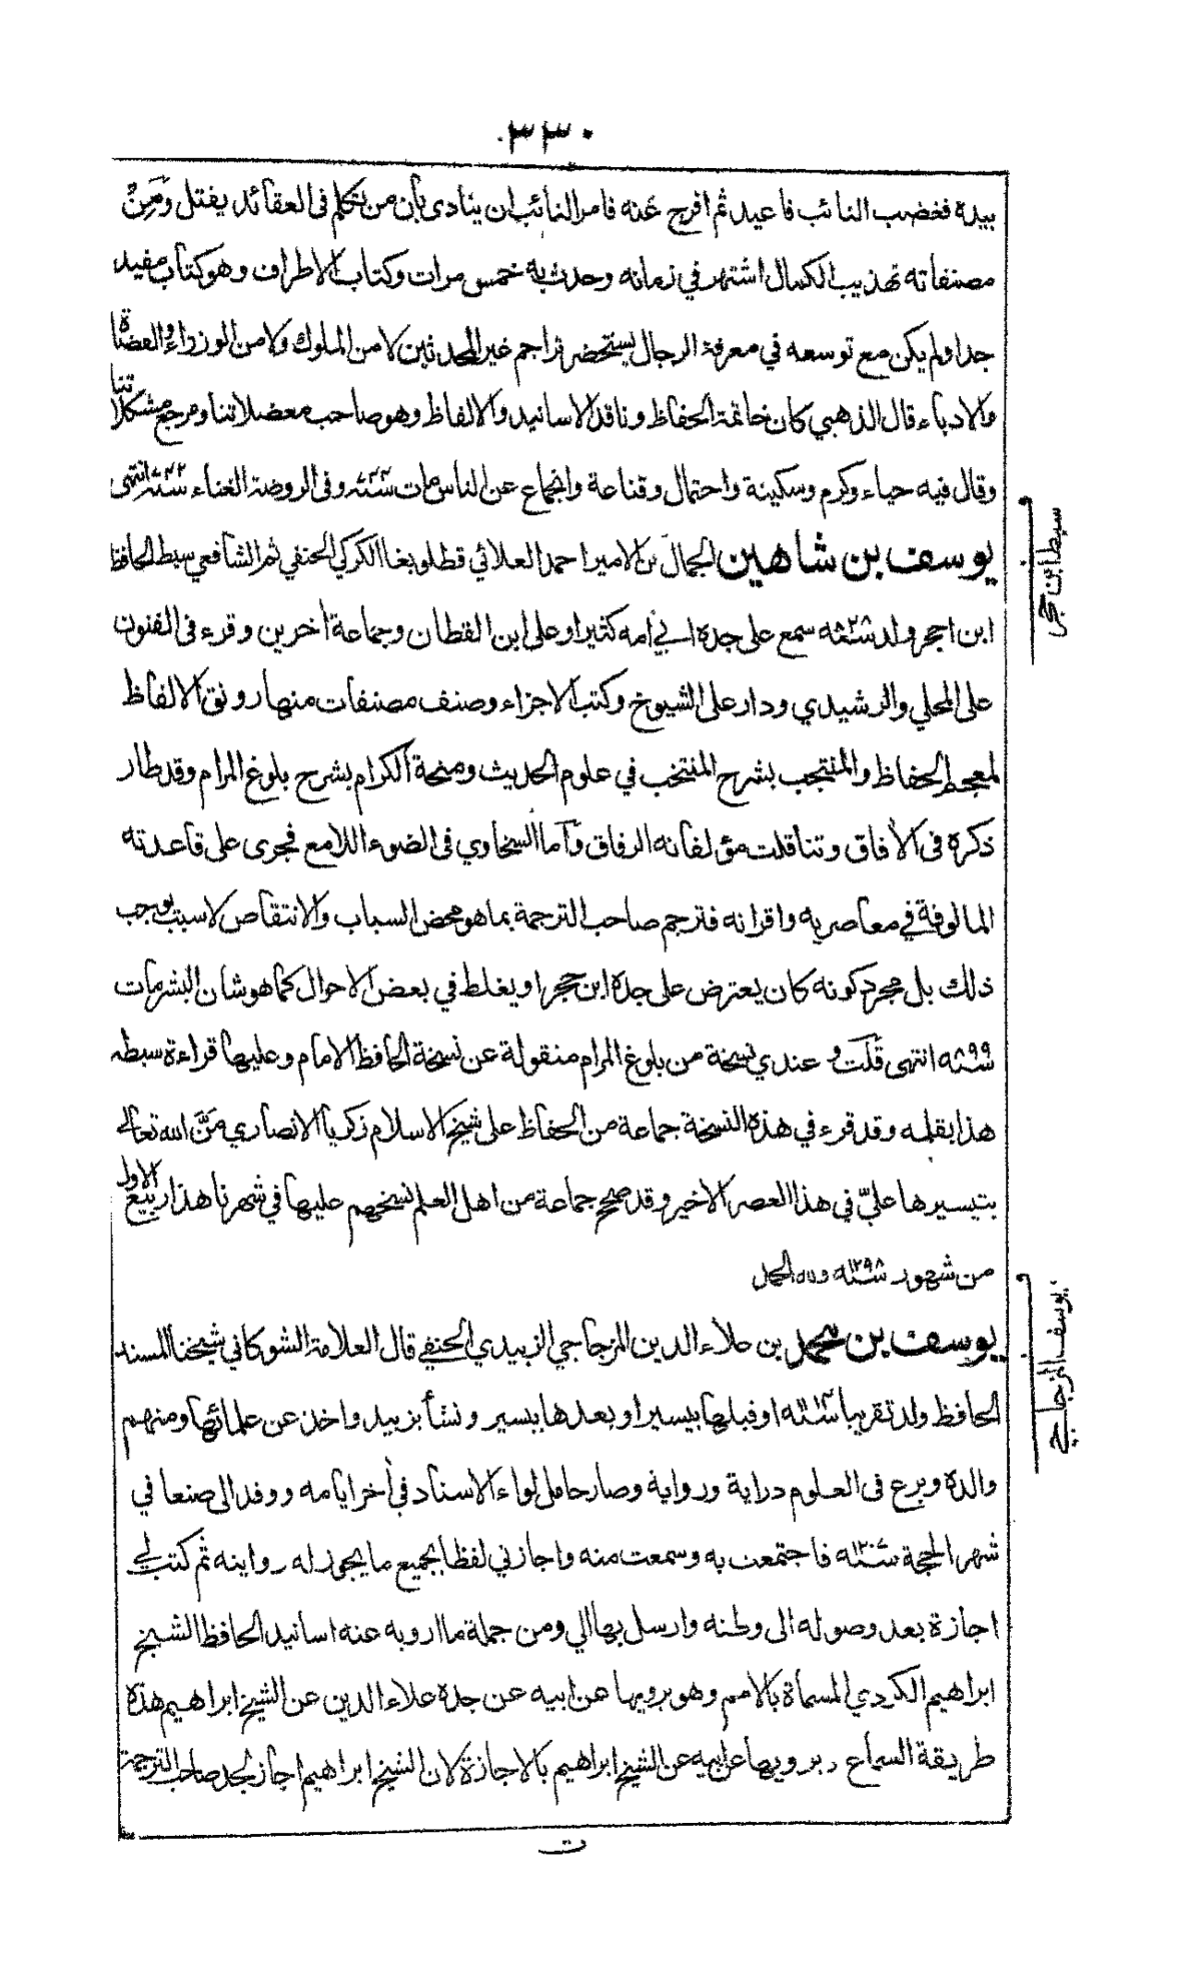 ٣٣٠
بيده فغضب النائب فاعيد ثم افرج عنه فامر النائب ان ينادى بأن من تكلم فى العقائد يقتل ومن
مصنفاته تهذيب الكمال اشتهر في زمانه وحدث به خمس مرات وكتاب الاطراف وهو كتاب مفيد
جدا ولم يكن مع توسعه في معرفة الرجال يستحضر تراجم غير المحدثين لا من الملوك ولا من الوزراء والقضاة
والادباء قال الذهبي كان خاتمة الحفاظ وناقد الاسانيد والالفاظ وهو صاحب معضلاتنا ومرجع مشكلاتنا
وقال فيه حياء وكرم وسكينة واحتمال وقناعة وانجماع عن الناس مات سنة وفى الروضة الغناء سنة ٧٤٢ انتهى
يوسف بن شاهين الجمال بن الامير احمد العلائي قطلوبغا الكركي الحنفي ثم الشافعي سبط الحافظ
ابن حجر ولد سنة ٨٢٨ سمع على جده ابي أمه كثيرا وعلى ابن القطان وجماعة أخرين وقرء فى الفنون
على المحلي والرشيدي ودار على الشيوخ وكتب الاجزاء وصنف مصنفات منها رونق الالفاظ
لمعجم الحفاظ والمنتجب بشرح المنتخب في علوم الحديث ومنحة الكرام بشرح بلوغ المرام وقد طار
ذكره فى الأفاق وتناقلت مؤلفاته الرفاق وأما السخاوي فى الضوء اللامع فجرى على قاعدته
المالوفة في معاصريه واقرانه فترجم صاحب الترجمة بما هو محض السباب والانتقاص لا سبب يوجب
ذلك بل مجرد كونه كان يعترض على جده ابن حجر او يغلط في بعض الاحوال كما هو شان البشر مات
سنة ٨٩٩ انتهى قلت و عندي نسخة من بلوغ المرام منقولة عن نسخة الحافظ الامام وعليها قراءة سبطه
هذا بقلمه وقد قرء في هذه النسخة جماعة من الحفاظ على شيخ الاسلام زكريا الانصاري منَّ الله تعالى
بتيسيرها عليّ في هذا العصر الاخير وقد صحح جماعة من اهل العلم نسخهم عليها في شهرنا هذا ربيع الاول
من شهور سنة ١٢٩٨ ولله الحمد
يوسف بن محمد بن علاء الدين المزجاجي الزبيدي الحنفي قال العلامة الشوكاني شيخنا المسند
الحافظ ولد تقريبا سنة ١١٤٠ او قبلها بيسير او بعدها بيسير ونشأ بزبيد واخذ عن علمائها ومنهم
والده وبرع فى العلوم دراية ورواية وصار حامل لواء الاسناد في أخر ايامه ووفد الى صنعا في
شهر الحجة سنة ١٢٠٧ فاجتمعت به وسمعت منه واجازني لفظا بجميع ما يجوز له روايته ثم كتب لي
اجازة بعد وصوله الى وطنه وارسل بها الي ومن جملة ما ارويه عنه اسانيد الحافظ الشيخ
ابراهيم الكردي المسماة بالامم وهو يرويها عن ابيه عن جده علاء الدين عن الشيخ ابراهيم هذه
طريقة السماع ويرويها عن ابيه عن الشيخ ابراهيم بالاجازة لان الشيخ ابراهيم اجاز لجد صاحب الترجمة
سبط ابن حجر
يوسف المزجاجي